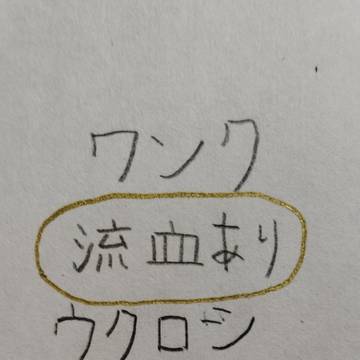 ワンク
流血あり
ウクロシ